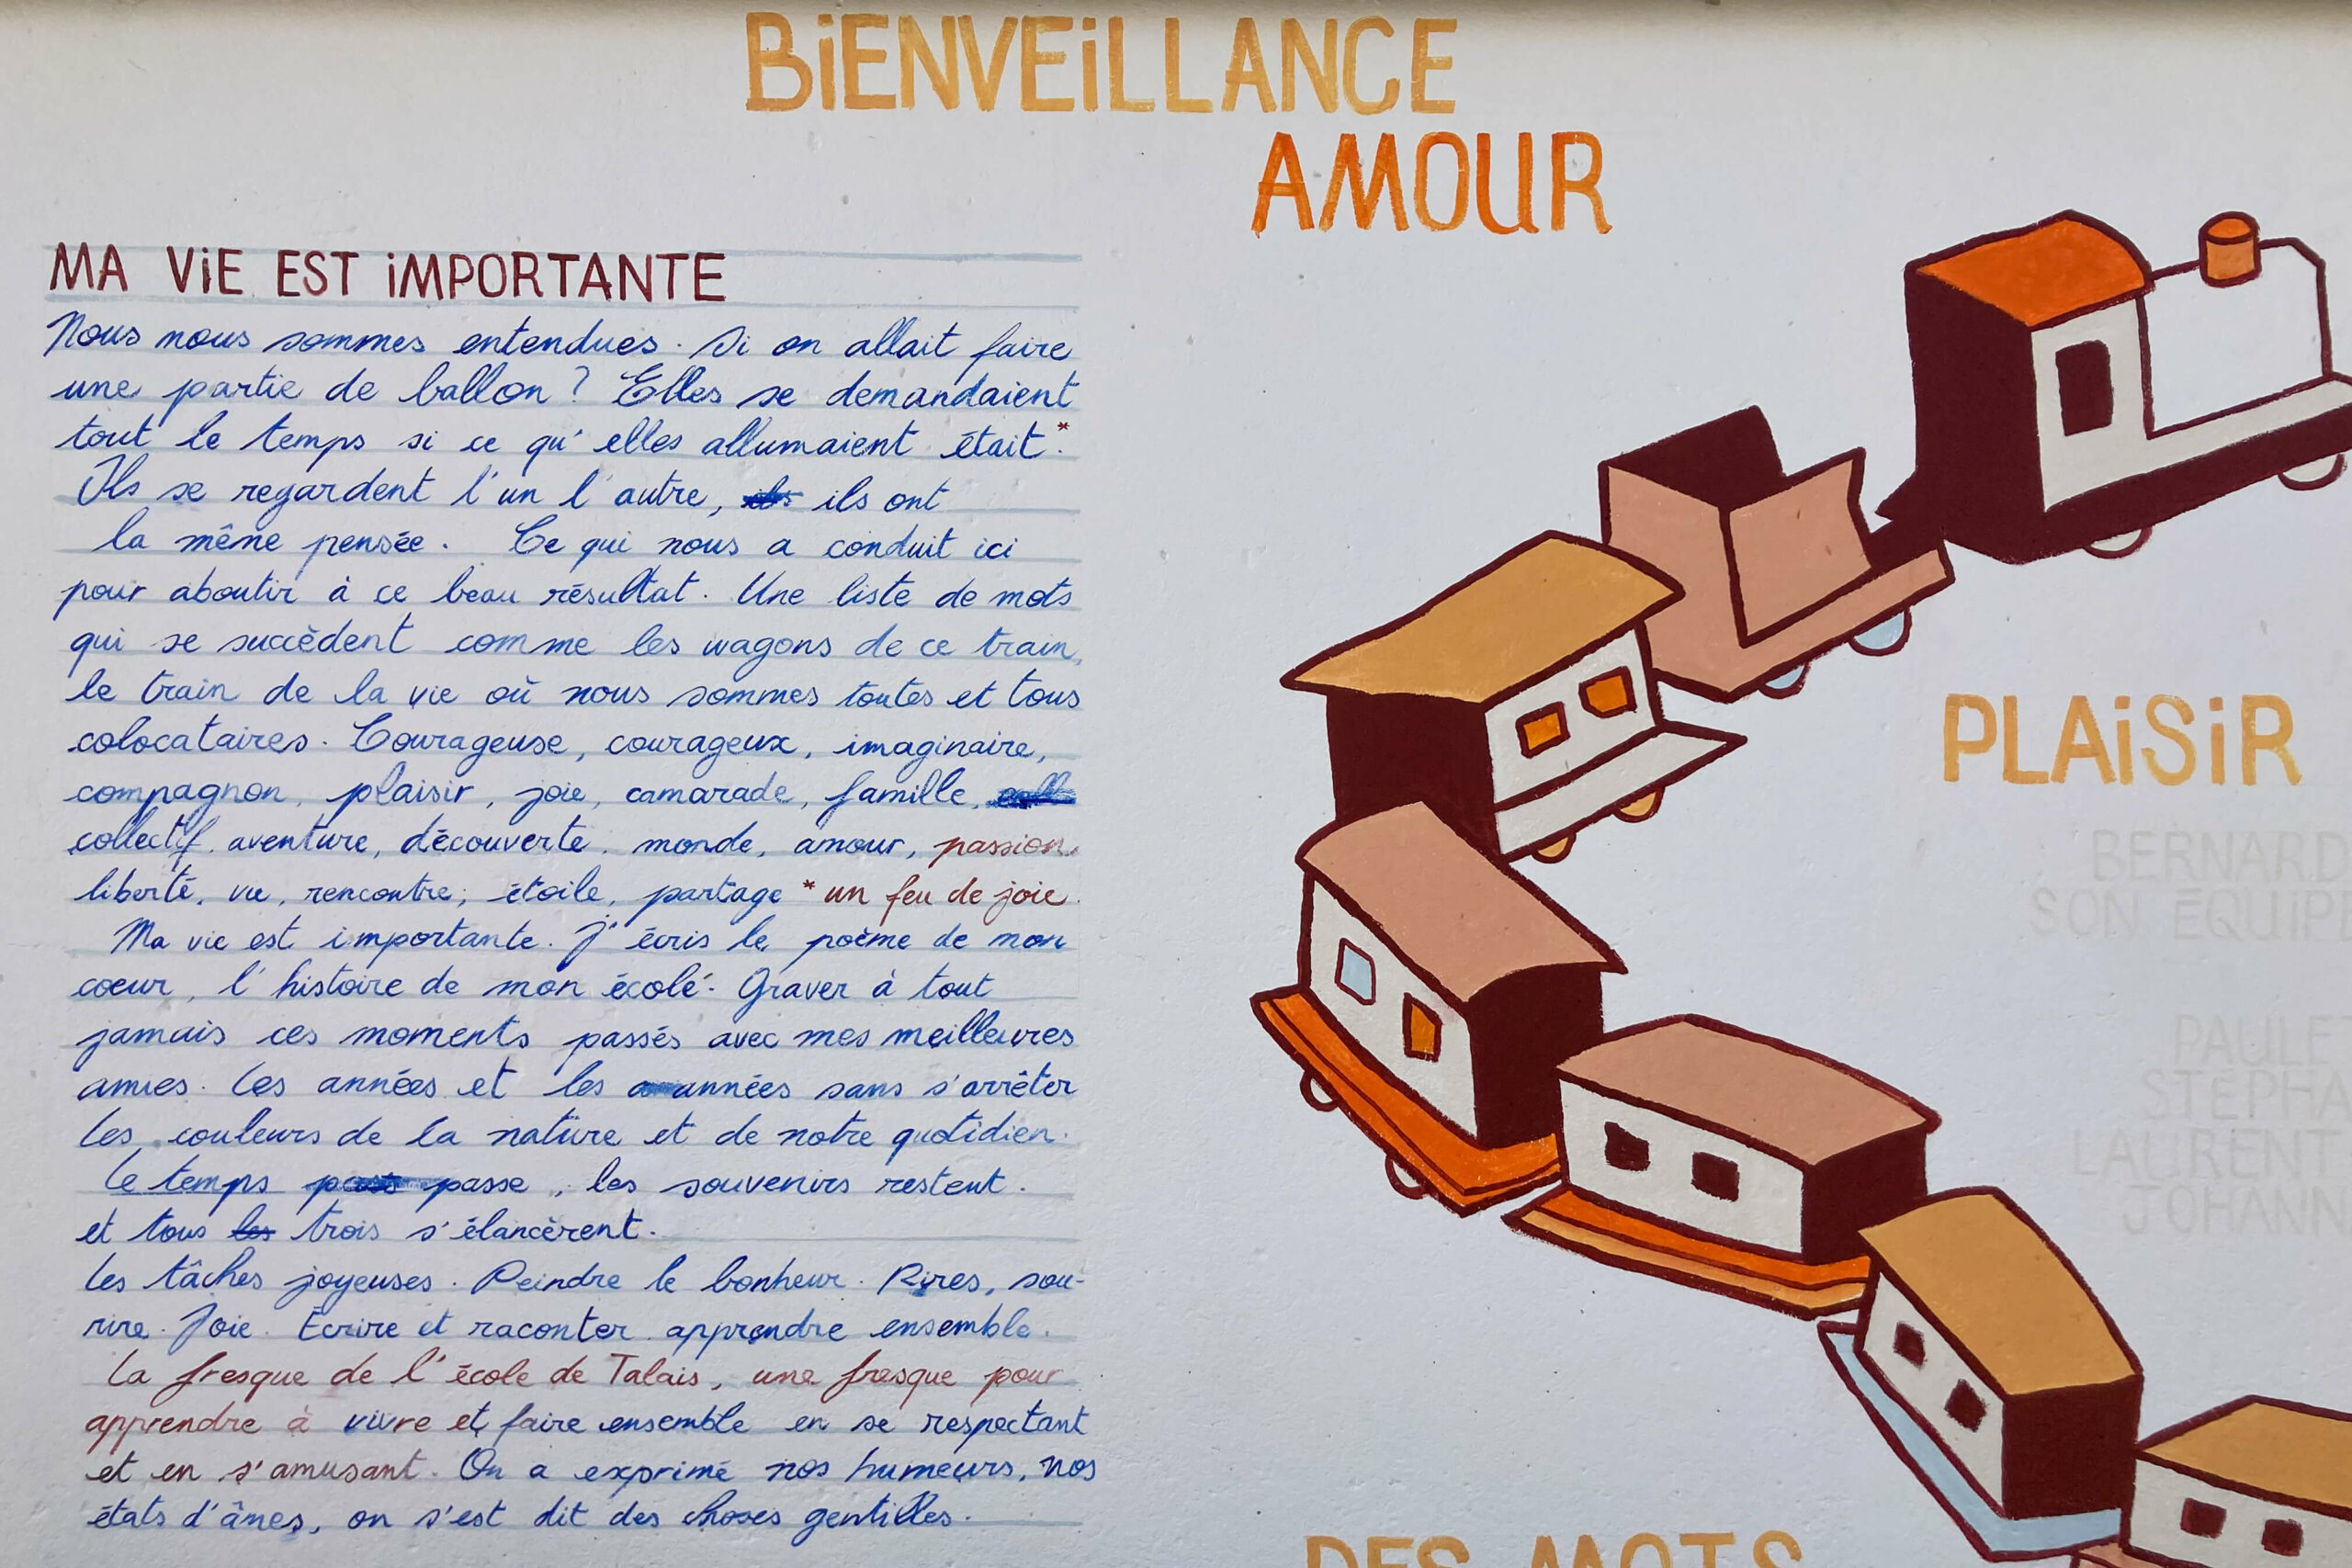 BiENVEiLLANCE
AMOUR
MA ViE EST iMPORTANTE
Nous nous sommes entendues. Si on allait faire
une partie de ballon ? Elles se demandaient
tout le temps si ce qu'elles allumaient était.*
Ils se regardent l'un l'autre, ils ont
la même pensée. Ce qui nous a conduit ici
pour aboutir à ce beau résultat. Une liste de mots
qui se succèdent comme les wagons de ce train,
le train de la vie où nous sommes toutes et tous
colocataires. Courageuse, courageux, imaginaire,
compagnon, plaisir, joie, camarade, famille,
collectif, aventure, découverte, monde, amour, passion,
liberté, vie, rencontre, étoile, partage * un feu de joie.
Ma vie est importante. J'écris le poème de mon
coeur, l'histoire de mon école. Graver à tout
jamais ces moments passés avec mes meilleures
amies. Les années et les années sans s'arrêter
Les couleurs de la nature et de notre quotidien.
Le temps passe, les souvenirs restent.
et tous les trois s'élancèrent.
Les tâches joyeuses. Peindre le bonheur. Rires, sou-
rire. Joie. Ecrire et raconter. apprendre ensemble.
La fresque de l'école de Talais, une fresque pour
apprendre à vivre et faire ensemble en se respectant
et en s'amusant. On a exprimé nos humeurs, nos
états d'âmes, on s'est dit des choses gentilles.
PLAiSiR
BERNARD
SON EQUiPE
PAULE
STEPHA
LAURENT
JOHANN
DES MOTS